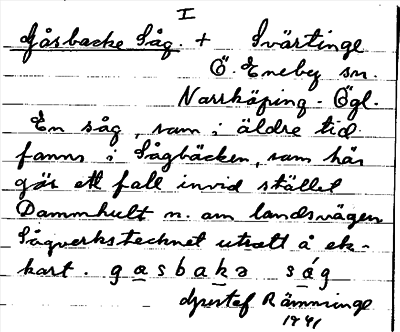 I
Gåsbacke Såg. + Svärtinge
Ö. Eneby sn.
Norrköping - Ögl.
En såg, som i äldre tid
fanns i Sågbäcken, som här
gör ett fall invid stället
Dammhult n. om landsvägen
Sågverkstecknet utsatt å ek-
kart. gasbakə såg
Gustaf Rämminge
1941